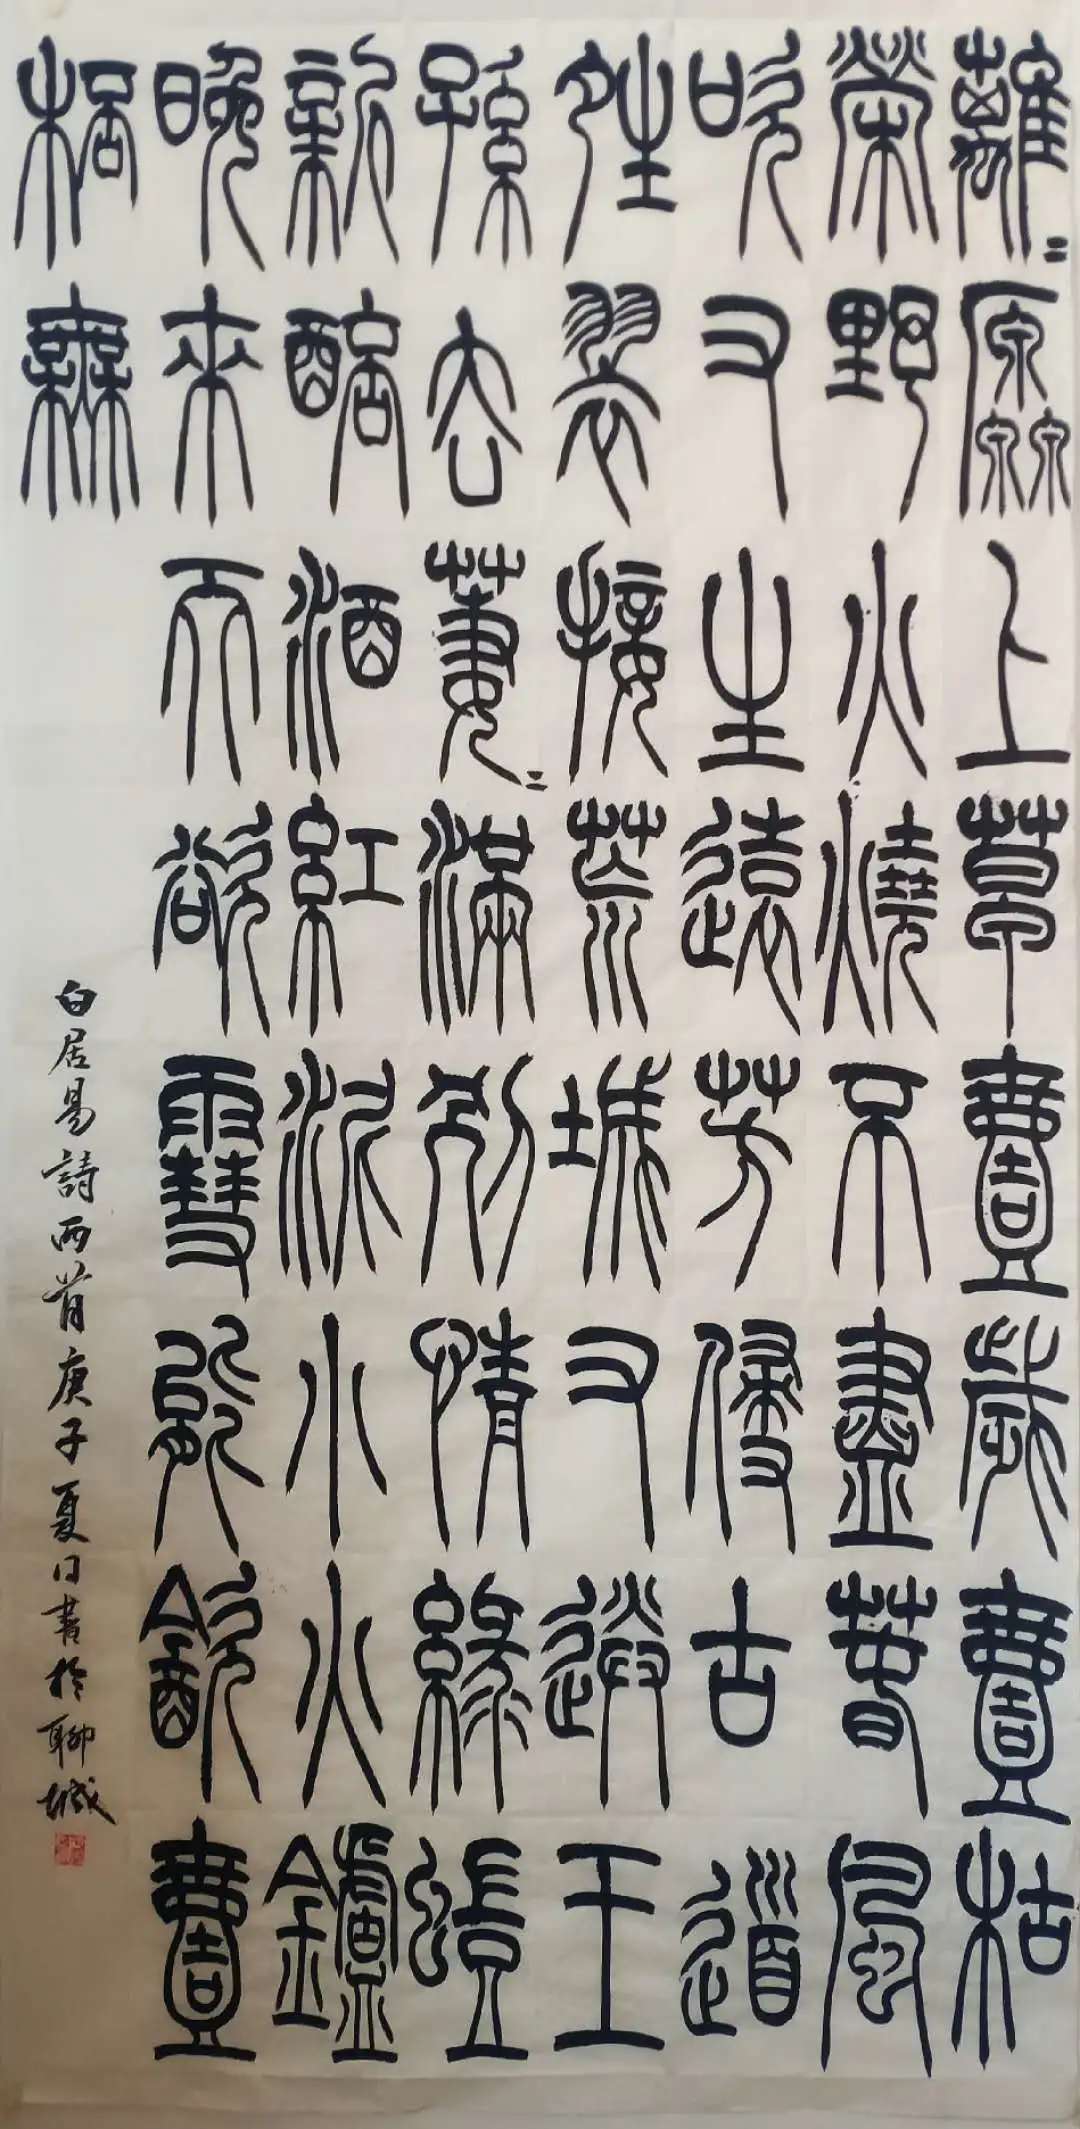 離〻厵上草壹歲壹枯
榮野火燒不盡春風
吹又生遠芳侵古道
夝翠接荒城又送王
孫去萋〻滿別情綠螘
新醅酒紅泥小火鑪
晚來天欲雪能飲壹
桮無
白居易詩兩首庚子夏日書於聊城